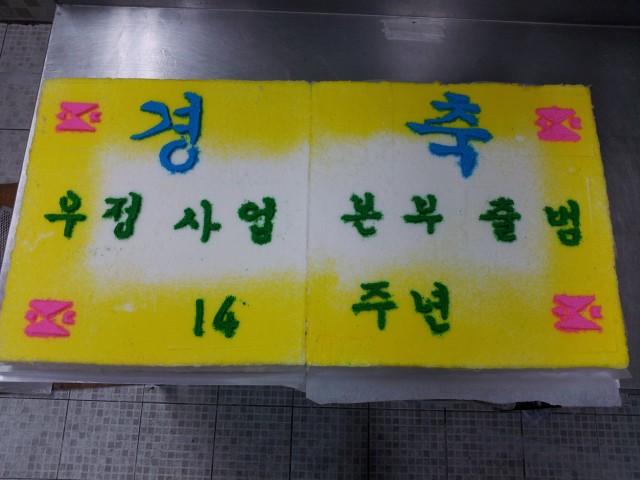 경 축
우정 사업 본부 출범
14 주년